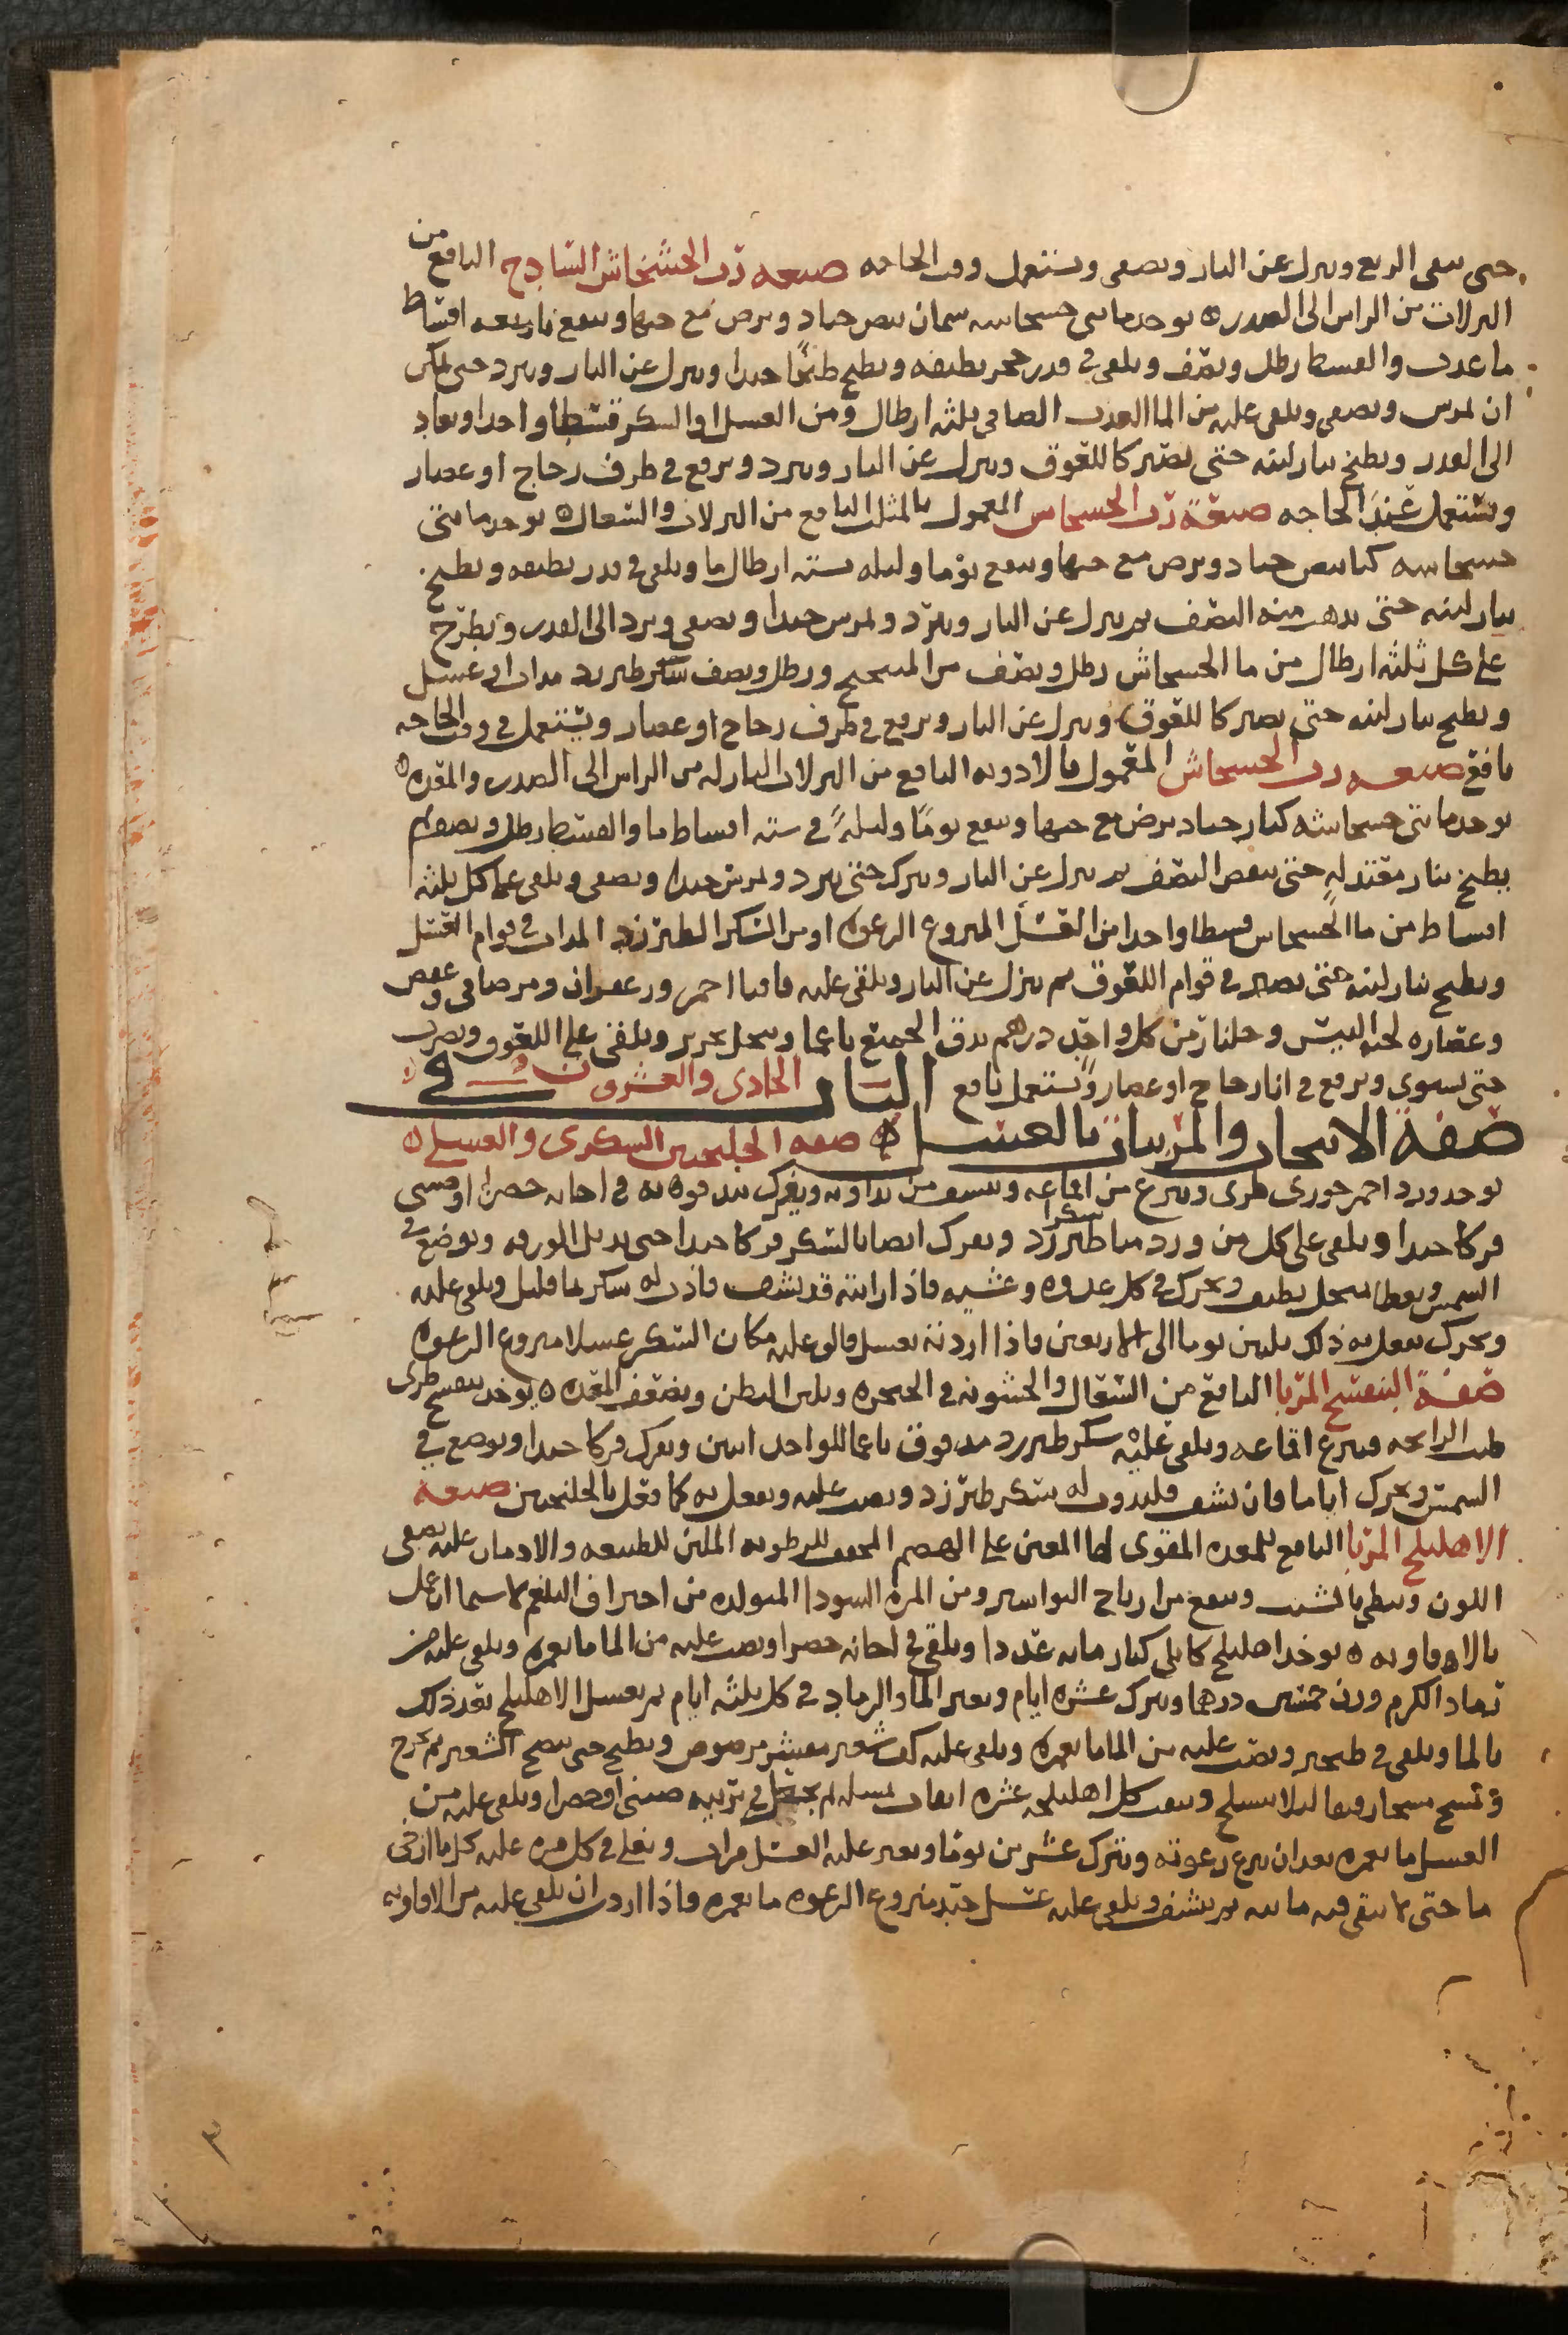 حتى يبقى الربع وينزل عن النار ويصفى ويستعمل وقت الحاجه صفه رب الخشخاش الساذج النافع من
النزلات من الراس الى الصدر ه يوخذ مايتى خشخاشه سمان بيض جياد ويرض مع حبها وينقع باربعه اقساط
ما عذب والقسط رطل ونصف ويلقى في قدر حجر نظيفه ويطبخ طبخًا جيدا وينزل عن النار ويبرد حتى يمكن
ان يمرس ويصفى ويلقى عليه من الما العذب الصافى ثلثه ارطال ومن العسل او السكر قسطا واحدا ويعاد
الى القدر ويطبخ بنار لينه حتى يصير كاللعوق وينزل عن النار ويبرد ويرفع في ظرف زجاج او عصار
ويستعمل عند الحاجه صفة رب الخشخاش المعمول بالمثلث النافع من النزلات والسعال ه يوخذ مايتى
خشخاشه كبار بيض جياد ويرض مع حبها وينقع يوما وليله بسته ارطال ما ويلقى في قدر نظيفه ويطبخ
بنار لينه حتى يذهب منه النصف ثم ينزل عن النار ويبرد ويمرس جيدا ويصفى ويرد الى القدر ويطرح
على كل ثلثه ارطال من ما الخشخاش رطل ونصف من الميبختج ورطل ونصف سكر طبرزد مذاب او عسل
ويطبخ بنار لينه حتى يصير كاللعوق وينزل عن النار ويرفع في ظرف زجاج او عصار ويستعمل في وقت الحاجه
نافع صفه رب الخشخاش المعمول بالادويه النافع من النزلات النازله من الراس الى الصدر والمعده ه
يوخذ مايتى خشخاشه كبار جياد يرض مع حبها وينقع يومًا وليلةً في سته اقساط ما والقسط رطل ونصف ثم
يطبخ بنار معتدله حتى ينقص النصف ثم ينزل عن النار ويترك حتى يبرد ويمرس جيدا ويصفى ويلقى على كل ثلثه
اقساط من ما الخشخاش قسطا واحدا من العسل المنزوع الرغوه او من السكر الطبرزد المذاب في قوام العسل
ويطبخ بنار لينه حتى يصير في قوام اللعوق ثم ينزل عن النار ويلقى عليه قاقيا احمر وزعفران ومر صافى وعفص
وعصاره لحيه التيس وجلنار من كل واحد درهم يدق الجميع ناعما وينخل بحرير ويلقى على اللعوق ويضرب
حتى يستوى ويرفع في انا زجاج او عصار ويستعمل نافع الباب الحادى والعشرون في
صفة الانبجات والمربيات بالعسل ه صفه الجلنجبين السكرى والعسلى ه
يوخذ ورد احمر جورى طرى وينزع من اقماعه وينشف من نداوته ويفرك باليد بقوه في اجانه خضرا او صينى
فركا جيدا ويلقى على كل من ورد منا سكرا طبرزد ويفرك ايضا بالسكر فركا جيدا حتى يذبل الورد ويوضع في
الشمس ويغطا بمنخل نظيف ويحرك في كل غدوه وعشيه فاذا رايته قد نشف فاذب له سكر بما قليل ويلقى عليه
ويحرك يفعل به ذلك ثلثين يوما الى الاربعين فاذا اردته بعسل فالق عليه مكان السكر عسلا منزوع الرغوه
صفة البنفسج المربا النافع من السعال والخشونه في الحنجره ويلين البطن ويضعف المعده ه يوخذ بنفسج طرى
طيب الرايحه فينزع اقماعه ويلقى عليه سكر طبرزد مدقوق ناعما للواحد اثنين ويفرك فركا جيدا ويوضع في
الشمس ويحرك اياما فان نشف فليذوب له سكر طبرزد ويصب عليه ويفعل به كما فعل بالجلنجبين صفه
الاهليلج المربا النافع للمعده المقوى لها المعين على الهضم المجفف للرطوبه الملين للطبيعه والادمان عليه يصفى
اللون ويبطى بالشيب وينفع من ارياح البواسير ومن المره السودا المتولده من احتراق البلغم لا سيما ان عمل
بالافاويه ه يوخذ اهليلج كابلى كبار مايه عددا ويلقى في اجانه خضرا ويصب عليه من الما ما يغمره ويلقى عليه من
رماد الكرم وزن خمسين درهما ويترك عشره ايام ويغير الما والرماد في كل ثلثه ايام ثم يغسل الاهليلج بعد ذلك
بالما ويلقى في طنجير ويصب عليه من الما ما يغمره ويلقى عليه كف شعير مقشر مرضوض ويطبخ حتى ينضج الشعير ثم يخرج
ويمسح مسحا رفيقا ليلا ينسلخ ويثقب كل اهليلجه عشره اثقاب بمسله ثم يجعل في برنيه صينى او خضرا ويلقى عليه من
العسل ما يغمره بعد ان ينزع رغوته ويترك عشرين يوما ويغير عليه العسل مرات ويغلى في كل مره عليه كل ما ارخى
ما حتى لا يبقى فيه مائيه ثم ينشف ويلقى عليه عسل جيد منزوع الرغوه ما يغمره فاذا اردت ان يلقى عليه من الافاويه